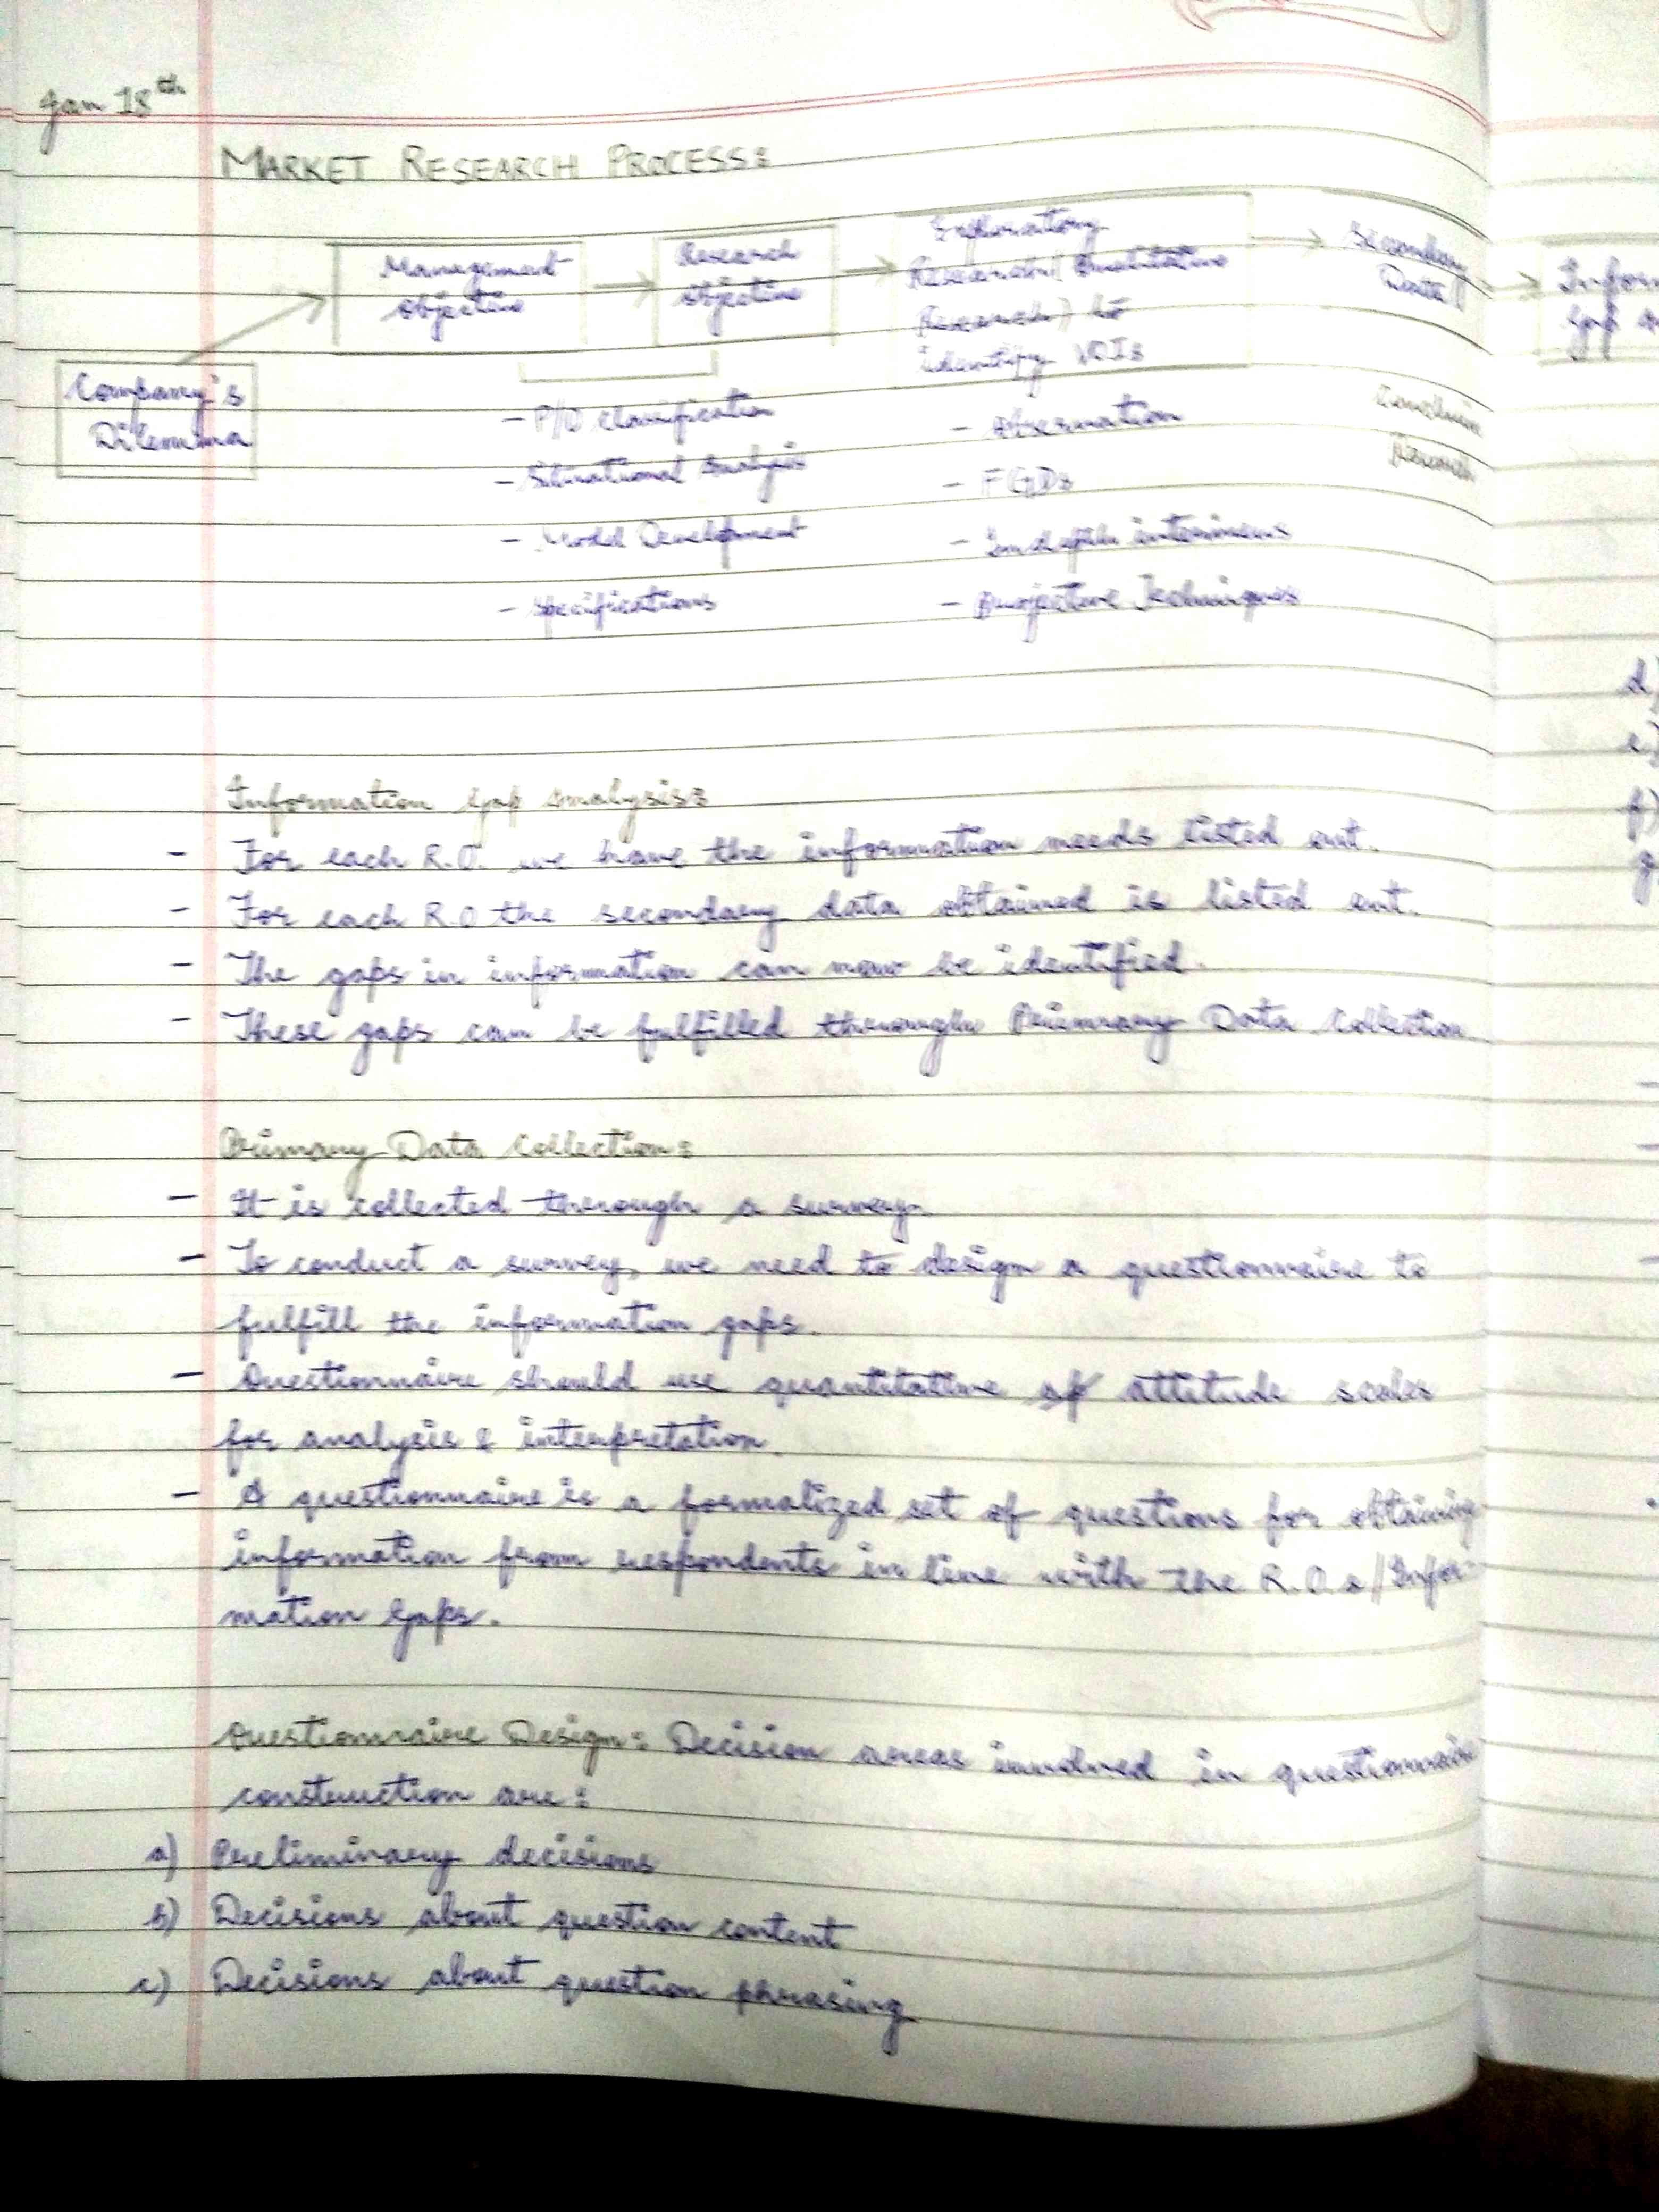 Jan 18th
MARKET RESEARCH PROCESS:
Company's
Dilemma
Management
Objective
Research
Objective
Exploratory
Research (Qualitative
Research) to
identify VOIs
Secondary
Data
Infor
Gap
- P/O classification
- Situational Analysis
- Model Development
- Specifications
- Observation
- FGDs
- Indepth interviews
- Projective Techniques
Research
Information Gap Analysis:
- For each R.O. we have the information needs listed out.
- For each R.O the secondary data obtained is listed out.
- The gaps in information can now be identified.
- These gaps can be fulfilled through Primary Data Collection
Primary Data Collection:
- It is collected through a survey.
- To conduct a survey, we need to design a questionnaire to
fulfill the information gaps.
- Questionnaire should use quantitative of attitude scales
for analysis & interpretation.
- A questionnaire is a formalized set of questions for obtaining
information from respondents in line with the R.O.s/Infor-
mation Gaps.
Questionnaire Design: Decision areas involved in questionnaire
construction are:
a) Preliminary decisions
b) Decisions about question content
c) Decisions about question phrasing
d)
e)
f)
g